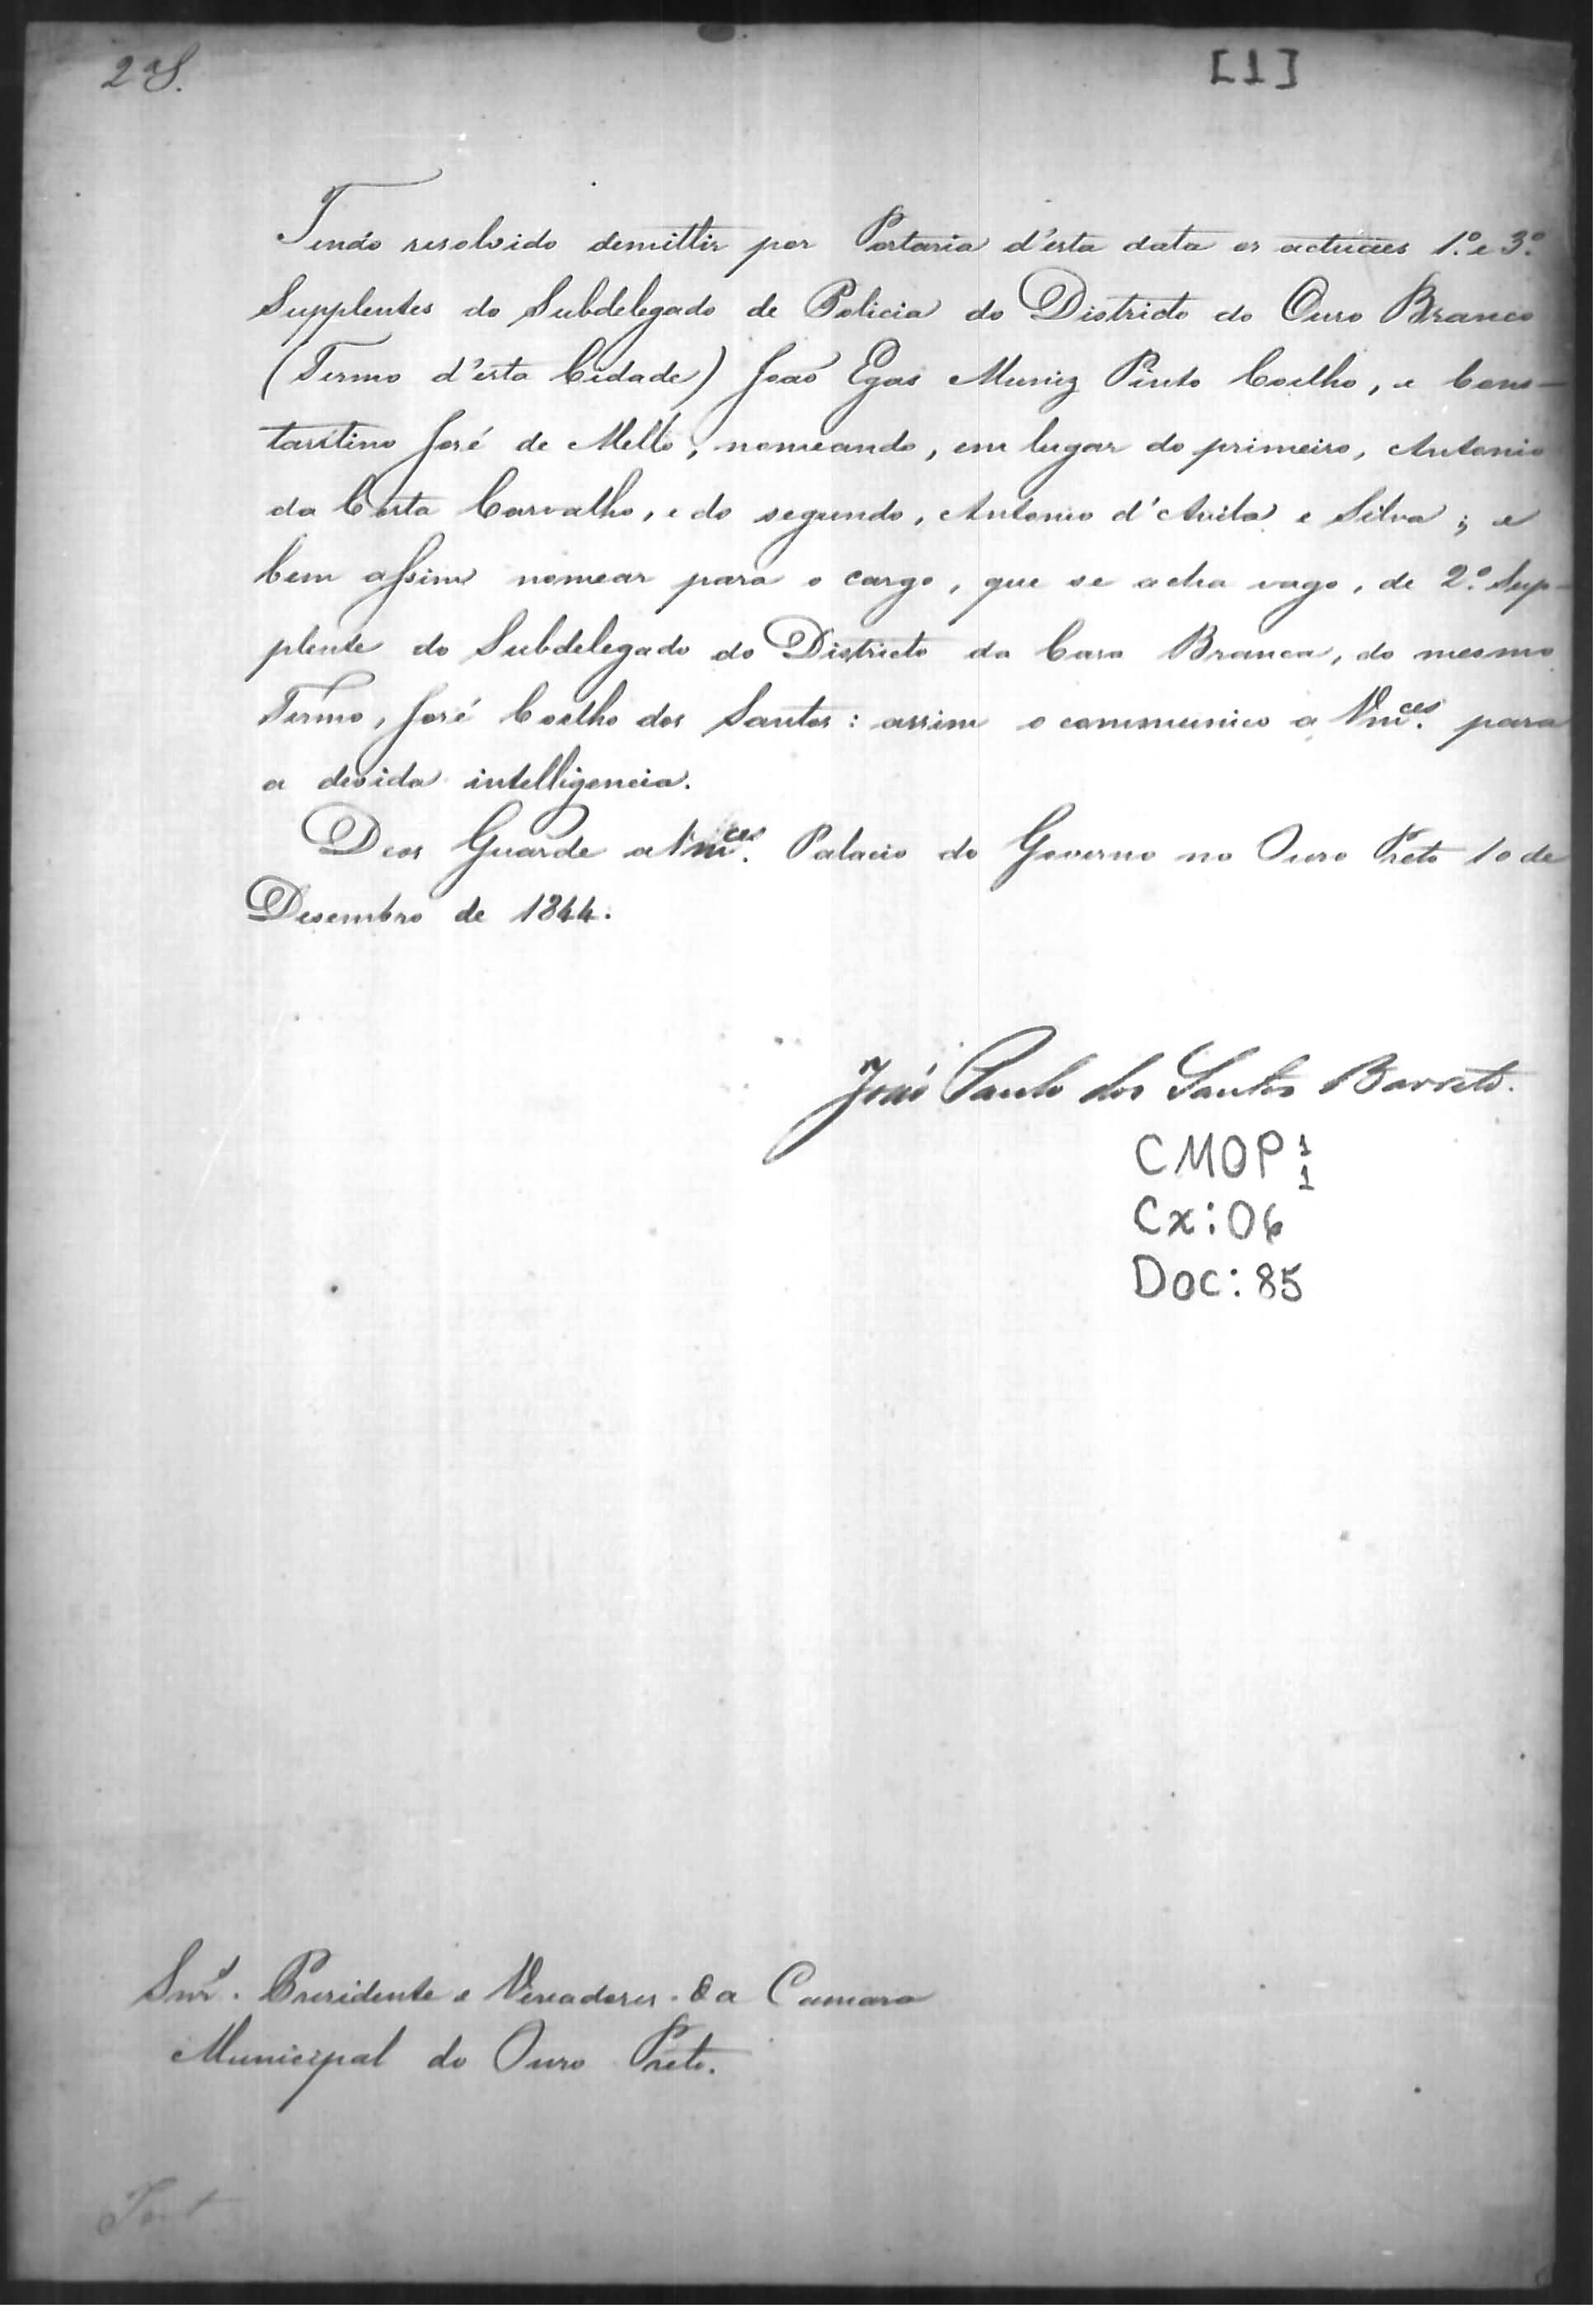 2ªS.
[1]
Tendo resolvido demittir por Portaria d'esta data os actuaes 1.º e 3.º
Supplentes do Subdelegado de Policia do Districto do Ouro Branco
(Termo d'esta Cidade) João Egas Muniz Pinto Coelho, e Cons-
tantino José de Mello, nomeando, em lugar do primeiro, Antonio
da Costa Carvalho, e do segundo, Antonio d'Avila e Silva; e
bem assim nomear para o cargo, que se acha vago, de 2.º Sup-
plente do Subdelegado do Districto da Casa Branca, do mesmo
Termo, José Coelho dos Santos: assim o communico a Vmces. para
a devida intelligencia.
Deos Guarde a Vmces. Palacio do Governo no Ouro Preto 10 de
Desembro de 1844.
João Paulo dos Santos Barreto.
CMOP 1
1
Cx: 06
Doc: 85
Snrs. Presidente e Vereadores da Camara
Municipal do Ouro Preto.